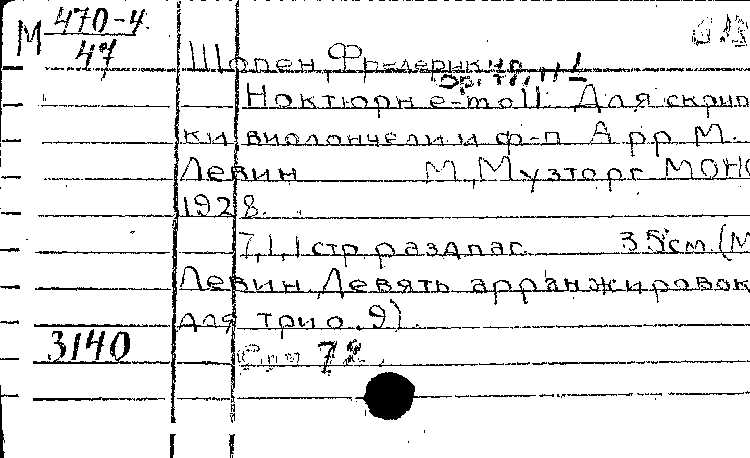 М 470-4
47
Шопен, Фредерик
Op. 72, N 1
Ноктюрн e-moll. Для скрип
ки виолончели и ф-п Арр М.
Левин М., Музторг МОНО
1928.
7,1,1 стр. раздпаг. 35 см. (М
Левин. Девять арранжировок
для трио. 9).
3140
72.